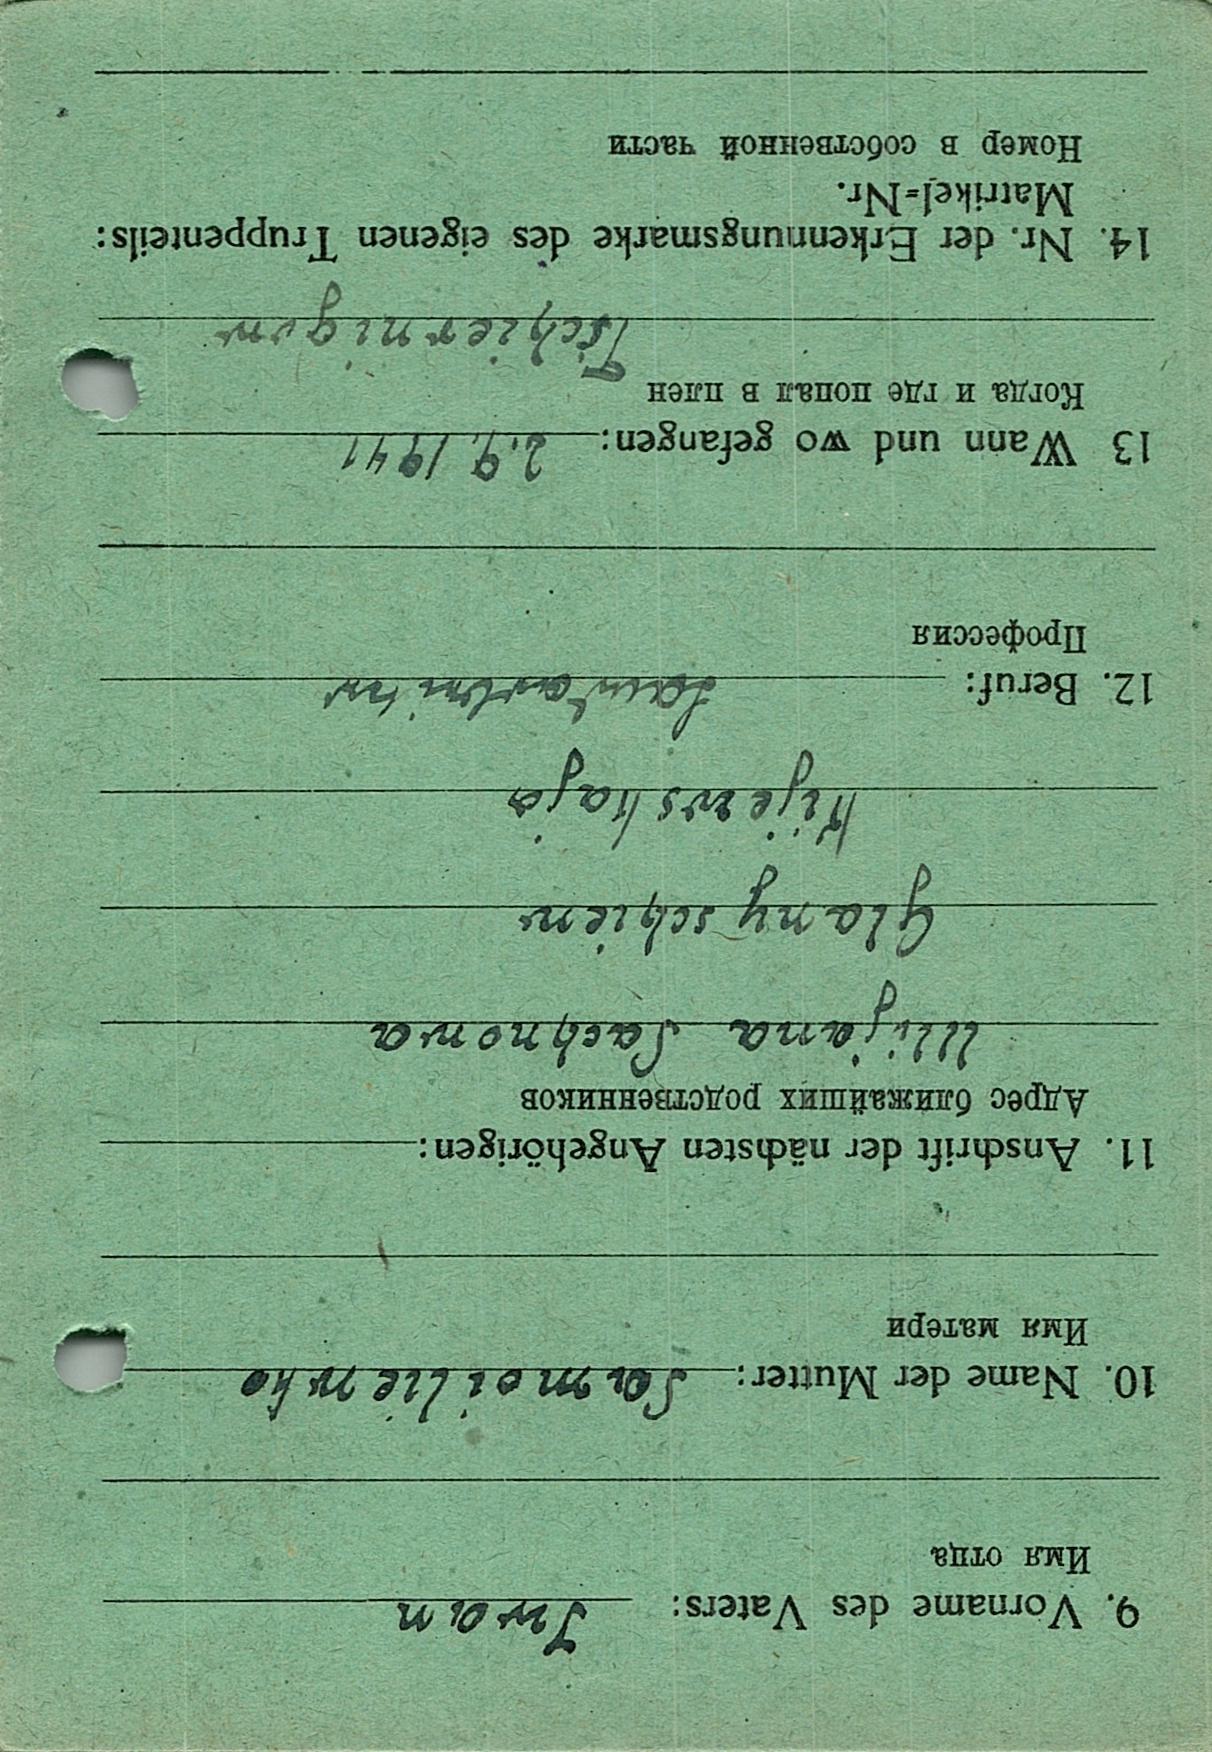 9. Vorname des Vaters: Iwan
Имя отца
10. Name der Mutter: Samoilienko
Имя матери
11. Anschrift der nächsten Angehörigen:
Адрес ближайших родственников
Ulijana Sachnowa
Glanyschiew
Kijewskaja
12. Beruf: Landarbeiter
Профессия
13 Wann und wo gefangen: 2.9.1941
Когда и где попал в плен
Tschiernigow
14. Nr. der Erkennungsmarke des eigenen Truppenteils:
Matrikel=Nr.
Номер в собственной части